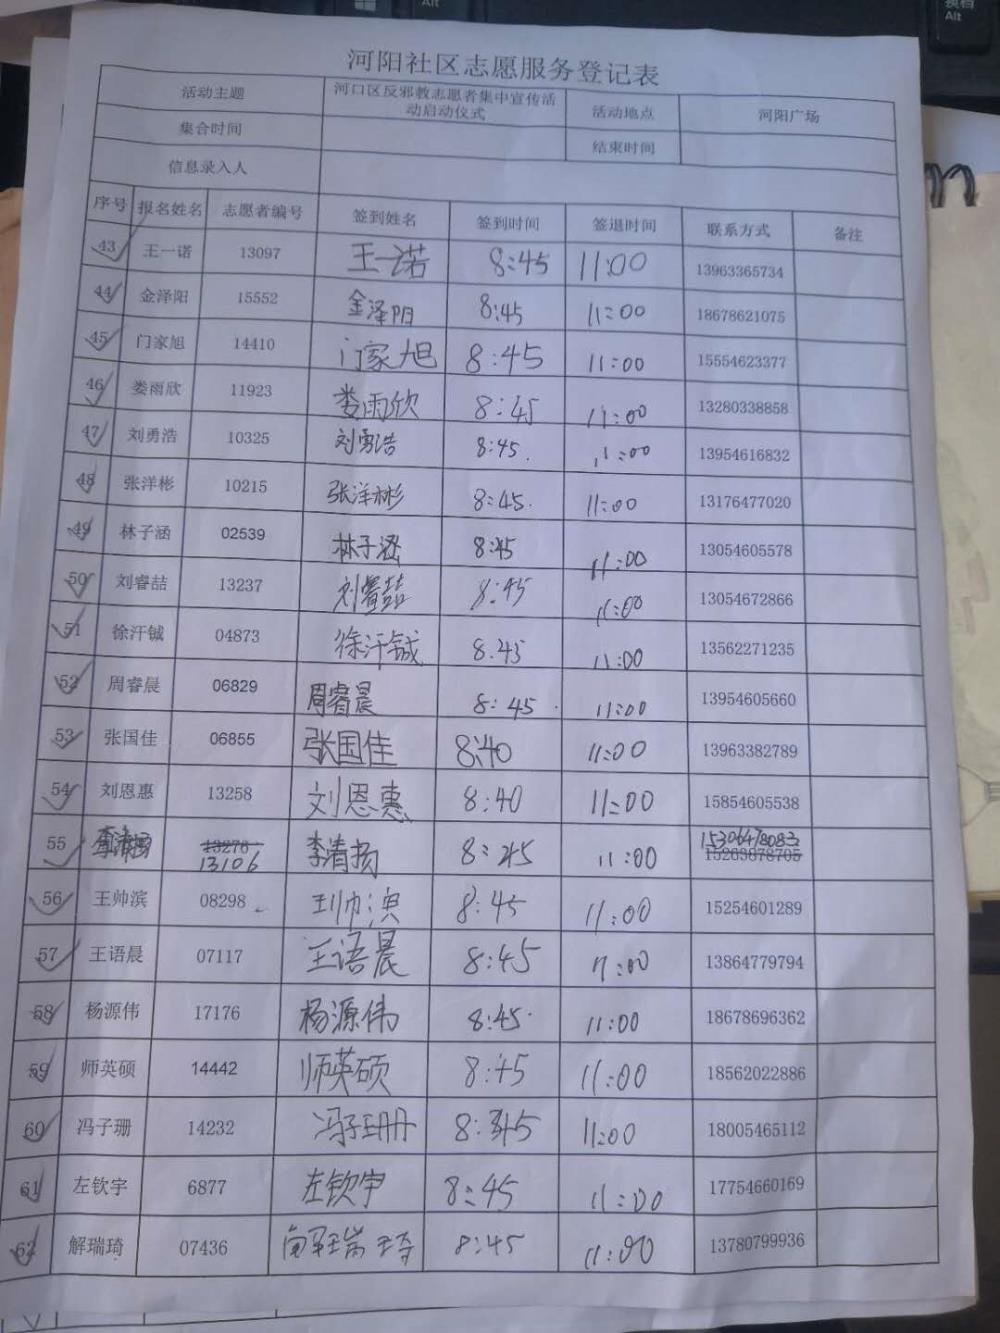 换档
Alt
Alt
河阳社区志愿服务登记表
活动主题 河口区反邪教志愿者集中宣传活动启动仪式 活动地点 河阳广场
集合时间 结束时间
信息录入人
序号 报名姓名 志愿者编号 签到姓名 签到时间 签退时间 联系方式 备注
43 王一诺 13097 王一诺 8:45 11:00 13963365734
44 金泽阳 15552 金泽阳 8:45 11:00 18678621075
45 门家旭 14410 门家旭 8:45 11:00 15554623377
46 娄雨欣 11923 娄雨欣 8:45 11:00 13280338858
47 刘勇浩 10325 刘勇浩 8:45. 11:00 13954616832
48 张洋彬 10215 张洋彬 8:45. 11:00 13176477020
49 林子涵 02539 林子涵 8:45 11:00 13054605578
50 刘睿喆 13237 刘睿喆 8:45 11:00 13054672866
51 徐汗铖 04873 徐汗铖 8:45 11:00 13562271235
52 周睿晨 06829 周睿晨 8:45. 11:00 13954605660
53 张国佳 06855 张国佳 8:40 11:00 13963382789
54 刘恩惠 13258 刘恩惠 8:40 11:00 15854605538
55 李清扬 13106 李清扬 8:45 11:00 15306478083
56 王帅滨 08298 王帅滨 8:45 11:00 15254601289
57 王语晨 07117 王语晨 8:45 11:00 13864779794
58 杨源伟 17176 杨源伟 8:45. 11:00 18678696362
59 师英硕 14442 师英硕 8:45 11:00 18562022886
60 冯子珊 14232 冯子珊 8:45 11:00 18005465112
61 左钦宇 6877 左钦宇 8:45 11:00 17754660169
62 解瑞琦 07436 解瑞琦 8:45 11:00 13780799936